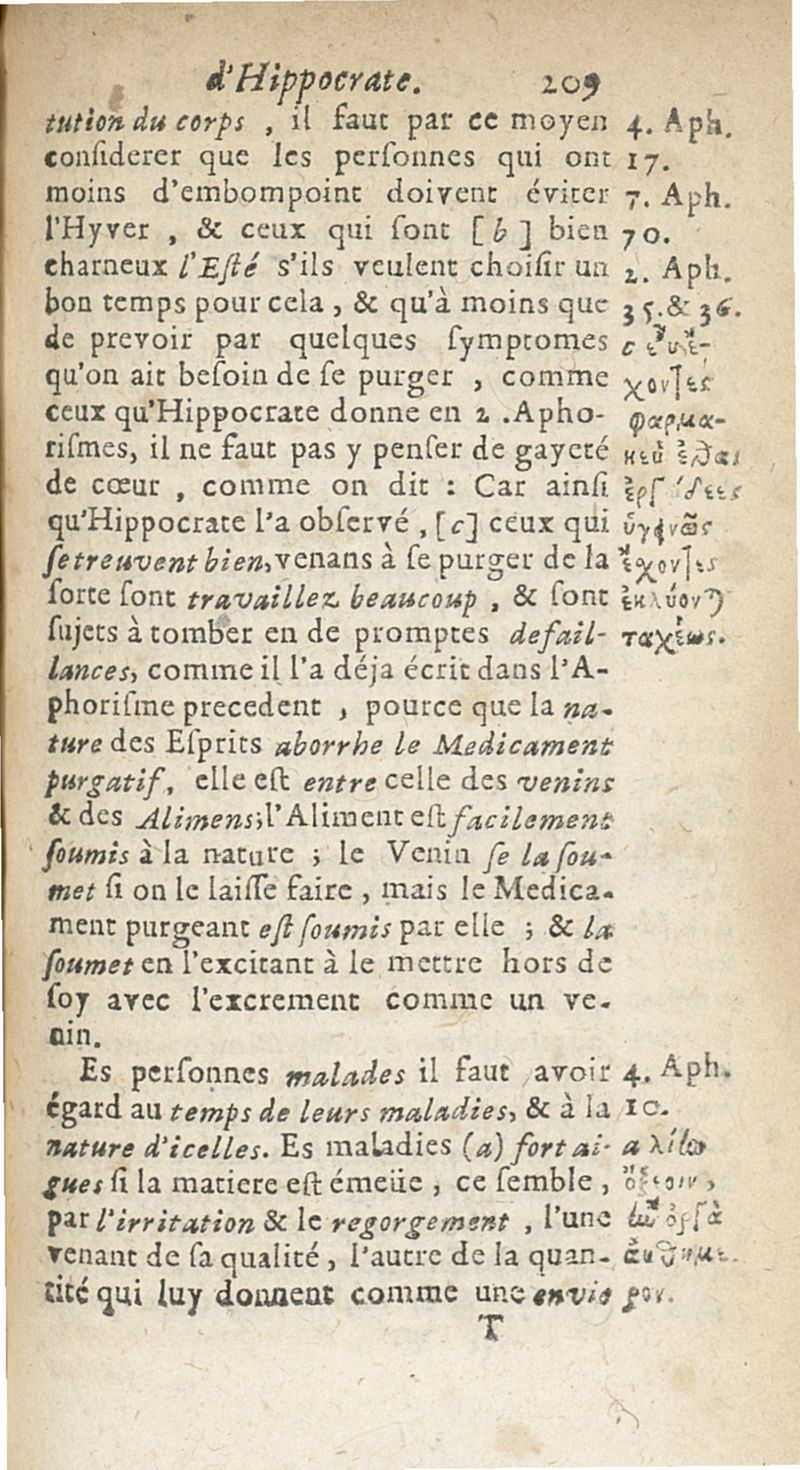 d'Hippocrate. 209
tution du corps , il faut par ce moyen
conſiderer que les perſonnes qui ont
moins d'embompoint doivent éviter
l'Hyver , & ceux qui ſont [ b ] bien
charneux l'Eſté s'ils veulent choiſir un
bon temps pour cela , & qu'à moins que
de prevoir par quelques ſymptomes
qu'on ait beſoin de ſe purger , comme
ceux qu'Hippocrate donne en 2 .Apho-
riſmes, il ne faut pas y penſer de gayeté
de cœur , comme on dit : Car ainſi
qu'Hippocrate l'a obſervé , [c] ceux qui
ſe treuvent bien, venans à ſe purger de la
ſorte ſont travaillez beaucoup , & ſont
ſujets à tomber en de promptes defail-
lances, comme il l'a déja écrit dans l'A-
phoriſme precedent , pource que la na-
ture des Eſprits aborrhe le Medicament
purgatif, elle eſt entre celle des venins
& des Alimens; l'Aliment eſt facilement
ſoumis à la nature ; le Venin ſe la ſou-
met ſi on le laiſſe faire , mais le Medica-
ment purgeant eſt ſoumis par elle ; & la
ſoumet en l'excitant à le mettre hors de
ſoy avec l'excrement comme un ve-
nin.
Es perſonnes malades il faut avoir
égard au temps de leurs maladies, & à la
nature d'icelles. Es maladies (a) fort ai-
gues ſi la matiere eſt émeüe , ce ſemble ,
par l'irritation & le regorgement , l'une
venant de ſa qualité , l'autre de la quan-
tité qui luy donnent comme une envie
T
4. Aph.
17.
7. Aph.
70.
2. Aph.
35. & 36.
c
χοντες
φαρμα-
ἔχοντες
ταχέως.
4. Aph.
10.
a